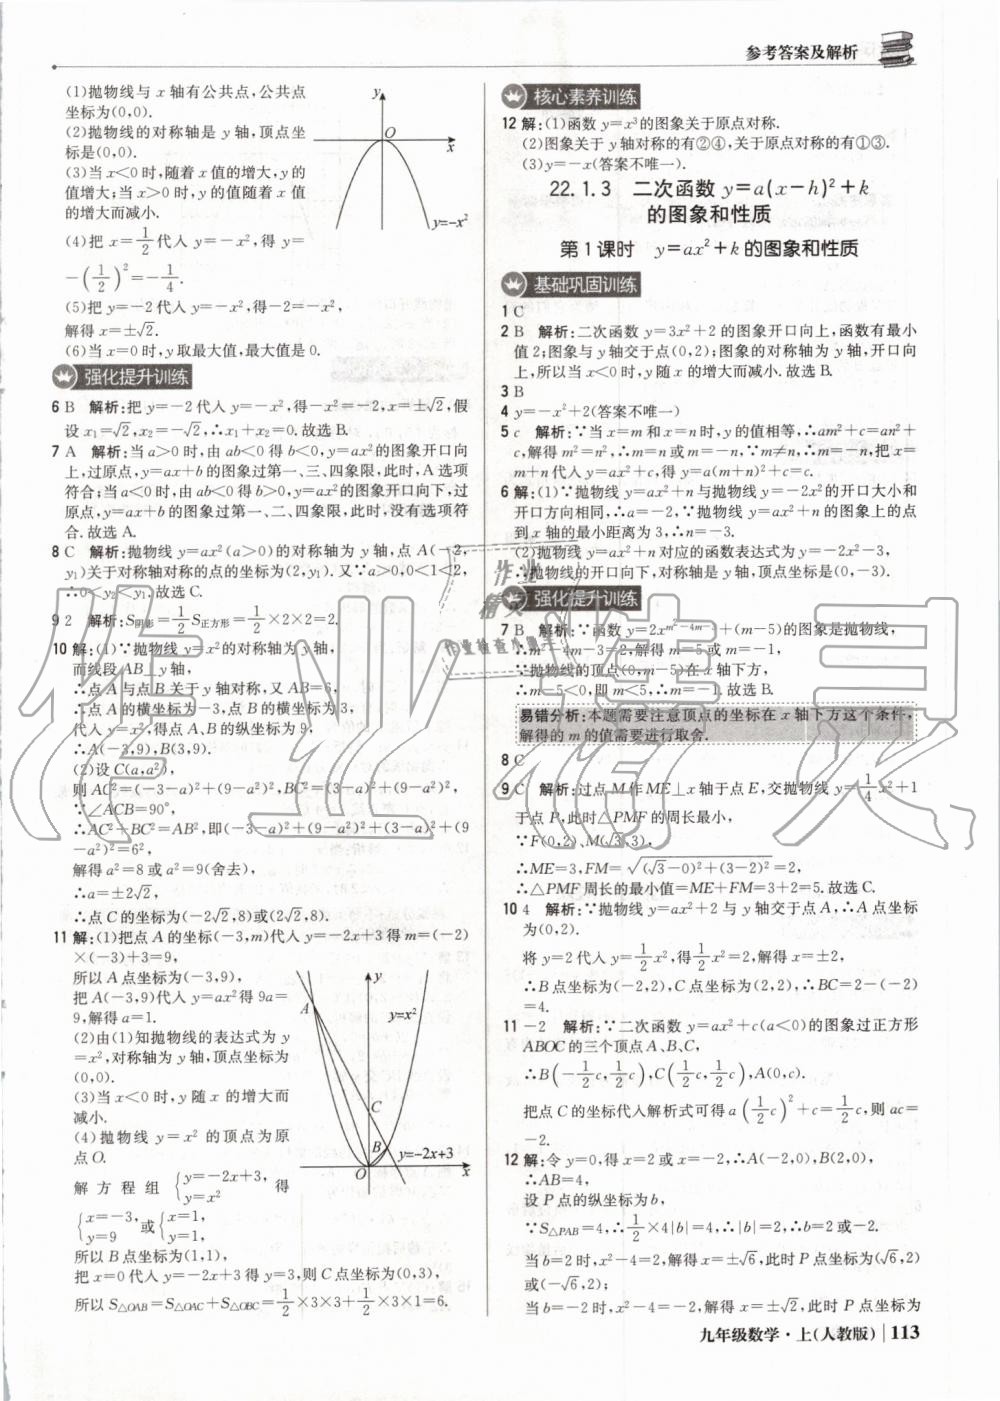 参考答案及解析
(1)抛物线与 x 轴有公共点,公共点
坐标为(0,0).
(2)抛物线的对称轴是 y 轴,顶点坐
标是(0,0).
(3)当 x<0 时,随着 x 值的增大,y 的
值增大;当 x>0 时,y 的值随着 x 值
的增大而减小.
(4)把 x=1/2代入 y=-x²,得 y=
-(1/2)²=-1/4.
(5)把 y=-2 代入 y=-x²,得-2=-x²,
解得 x=±√2.
(6)当 x=0 时,y 取最大值,最大值是 0.
y
O
x
y=-x²
强化提升训练
6 B 解析:把 y=-2 代入 y=-x²,得-x²=-2,x=±√2,假
设 x₁=√2,x₂=-√2,∴x₁+x₂=0.故选 B.
7 A 解析:当 a>0 时,由 ab<0 得 b<0,y=ax²的图象开口向
上,过原点,y=ax+b 的图象过第一、三、四象限,此时,A 选项
符合;当 a<0 时,由 ab<0 得 b>0,y=ax²的图象开口向下,过
原点,y=ax+b 的图象过第一、二、四象限,此时,没有选项符
合.故选 A.
8 C 解析:抛物线 y=ax²(a>0)的对称轴为 y 轴,点 A(-2,
y₁)关于对称轴对称的点的坐标为(2,y₁).又∵a>0,0<1<2,
∴0<y₂<y₁.故选 C.
9 2 解析:S阴影=1/2S正方形=1/2×2×2=2.
10 解:(1)∵抛物线 y=x²的对称轴为 y 轴,
而线段 AB⊥y 轴,
∴点 A 与点 B 关于 y 轴对称,又 AB=6,
∴点 A 的横坐标为-3,点 B 的横坐标为 3,
代入 y=x²,得点 A、B 的纵坐标为 9,
∴A(-3,9),B(3,9).
(2)设 C(a,a²),
则 AC²=(-3-a)²+(9-a²)²,BC²=(3-a)²+(9-a²)²,
∵∠ACB=90°,
∴AC²+BC²=AB²,即(-3-a)²+(9-a²)²+(3-a)²+(9
-a²)²=6²,
解得 a²=8 或 a²=9(舍去),
∴a=±2√2,
∴点 C 的坐标为(-2√2,8)或(2√2,8).
11 解:(1)把点 A 的坐标(-3,m)代入 y=-2x+3 得 m=(-2)
×(-3)+3=9,
所以 A 点坐标为(-3,9),
把 A(-3,9)代入 y=ax²得 9a=
9,解得 a=1.
(2)由(1)知抛物线的表达式为 y
=x²,对称轴为 y 轴,顶点坐标为
(0,0).
(3)当 x<0 时,y 随 x 的增大而
减小.
(4)抛物线 y=x² 的顶点为原
点 O.
解方程组{y=-2x+3,y=x² 得
{x=-3,y=9 或{x=1,y=1,
所以 B 点坐标为(1,1),
把 x=0 代入 y=-2x+3 得 y=3,则 C 点坐标为(0,3),
所以 S△OAB=S△OAC+S△OBC=1/2×3×3+1/2×3×1=6.
y
A
y=x²
C
B
y=-2x+3
O
x
核心素养训练
12 解:(1)函数 y=x³的图象关于原点对称.
(2)图象关于 y 轴对称的有②④,关于原点对称的有①③.
(3)y=-x(答案不唯一).
22.1.3 二次函数 y=a(x-h)²+k
的图象和性质
第 1 课时 y=ax²+k 的图象和性质
基础巩固训练
1 C
2 B 解析:二次函数 y=3x²+2 的图象开口向上,函数有最小
值 2;图象与 y 轴交于点(0,2);图象的对称轴为 y 轴,开口向
上,所以当 x<0 时,y 随 x 的增大而减小.故选 B.
3 B
4 y=-x²+2(答案不唯一)
5 c 解析:∵当 x=m 和 x=n 时,y 的值相等,∴am²+c=an²+
c,解得 m²=n²,∴m=n 或 m=-n,∵m≠n,∴m=-n,把 x=
m+n 代入 y=ax²+c,得 y=a(m+n)²+c=c.
6 解:(1)∵抛物线 y=ax²+n 与抛物线 y=-2x²的开口大小和
开口方向相同,∴a=-2,∵抛物线 y=ax²+n 的图象上的点
到 x 轴的最小距离为 3,∴n=-3.
(2)抛物线 y=ax²+n 对应的函数表达式为 y=-2x²-3,
∴抛物线的开口向下,对称轴是 y 轴,顶点坐标是(0,-3).
强化提升训练
7 B 解析:∵函数 y=2x^(m²-4m-3)+(m-5)的图象是抛物线,
∴m²-4m-3=2,解得 m=5 或 m=-1,
∵抛物线的顶点(0,m-5)在 x 轴下方,
∴m-5<0,即 m<5,∴m=-1.故选 B.
易错分析:本题需要注意顶点的坐标在 x 轴下方这个条件,
解得的 m 的值需要进行取舍.
8 C
9 C 解析:过点 M 作 ME⊥x 轴于点 E,交抛物线 y=1/4x²+1
于点 P,此时△PMF 的周长最小,
∵F(0,2)、M(√3,3),
∴ME=3,FM=√((√3-0)²+(3-2)²)=2,
∴△PMF 周长的最小值=ME+FM=3+2=5.故选 C.
10 4 解析:∵抛物线 y=ax²+2 与 y 轴交于点 A,∴A 点坐标
为(0,2).
将 y=2 代入 y=1/2x²,得1/2x²=2,解得 x=±2,
∴B 点坐标为(-2,2),C 点坐标为(2,2),∴BC=2-(-2)
=4.
11 -2 解析:∵二次函数 y=ax²+c(a<0)的图象过正方形
ABOC 的三个顶点 A、B、C,
∴B(-1/2c,1/2c),C(1/2c,1/2c),A(0,c).
把点 C 的坐标代入解析式可得 a(1/2c)²+c=1/2c,则 ac=
-2.
12 解:令 y=0,得 x=2 或 x=-2,∴A(-2,0),B(2,0),
∴AB=4,
设 P 点的纵坐标为 b,
∵S△PAB=4,∴1/2×4|b|=4,∴|b|=2,∴b=2 或-2.
当 b=2 时,x²-4=2,解得 x=±√6,此时 P 点坐标为(√6,2)
或(-√6,2);
当 b=-2 时,x²-4=-2,解得 x=±√2,此时 P 点坐标为
九年级数学·上(人教版) 113